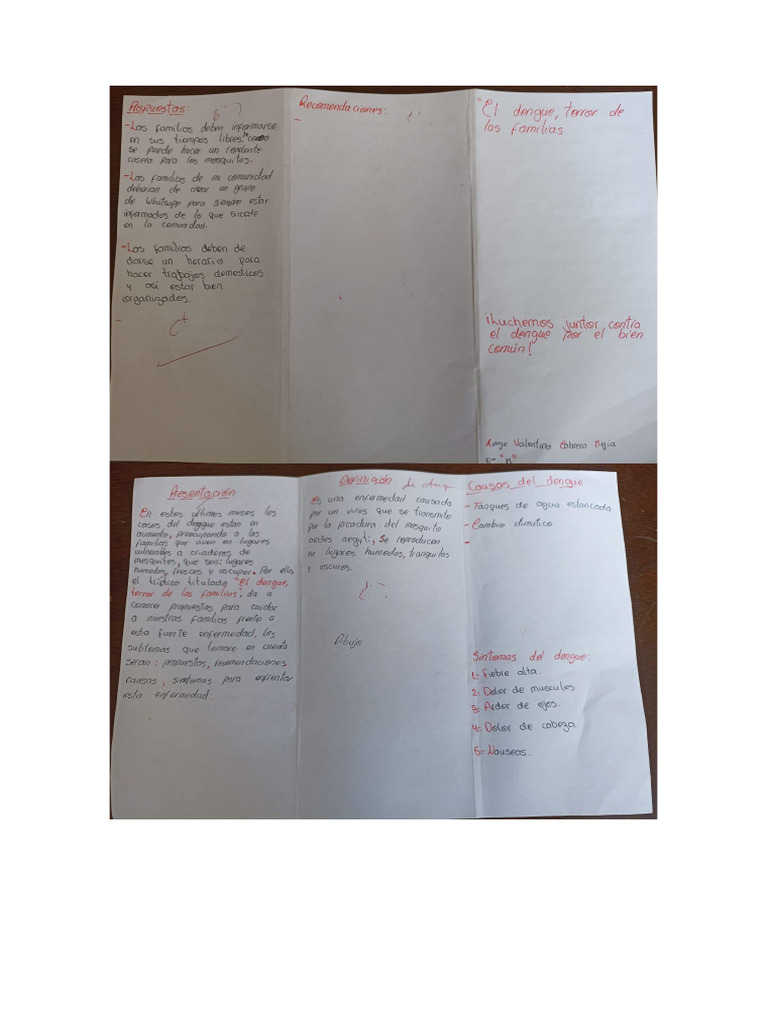 Propuestas:
- Las familias deben informarse
en sus tiempos libres "como
se puede hacer un repelente
casero para los mosquitos.
- Las familias de mi comunidad
deberian de crear un grupo
de Whatsapp para siempre estar
informados de lo que sucate
en la comunidad.
- Las familias deben de
darse un horario para
hacer trabajos domesticos
y asi estar bien
organizados.
-
Recomendaciones:
-
"El dengue, terror de
las familias
¡Luchemos juntor contra
el dengue por el bien
común!
Valentino Cabrera Mejia
5- "A"
Presentación
En estos últimos meses los
casos del dengue estan en
aumento, preocupando a las
familias que viven en lugares
vulnerables a criaderos de
mosquitos, que son: lugares
humedos, frescos y oscuros. Por ello,
el tríptico titulado "El dengue,
terror de las familias", da a
conocer propuestas para cuidar
a nuestras familias frente a
esta fuerte enfermedad, los
subtemas que tomare en cuenta
seran: propuestas, recomendaciones
causas, sintomas para enfrentar
esta enfermedad.
Definición
Es una enfermedad causada
por un virus que se transmite
por la picadura del mosquito
aedes aegyti, Se reproducen
en lugares humedos, tranquilos
y oscuros.
Dibujo
Causas del dengue
- Tanques de agua estancada
- Cambio climatico
-
Sintomas del dengue:
1- Fiebre alta.
2- Dolor de musculos
3- Ardor de ojos.
4- Dolor de cabeza.
5- Nauseas.